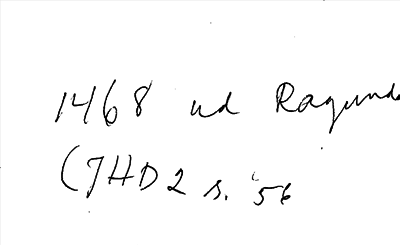 1468 ud Ragunda
(JHD2 s. 56